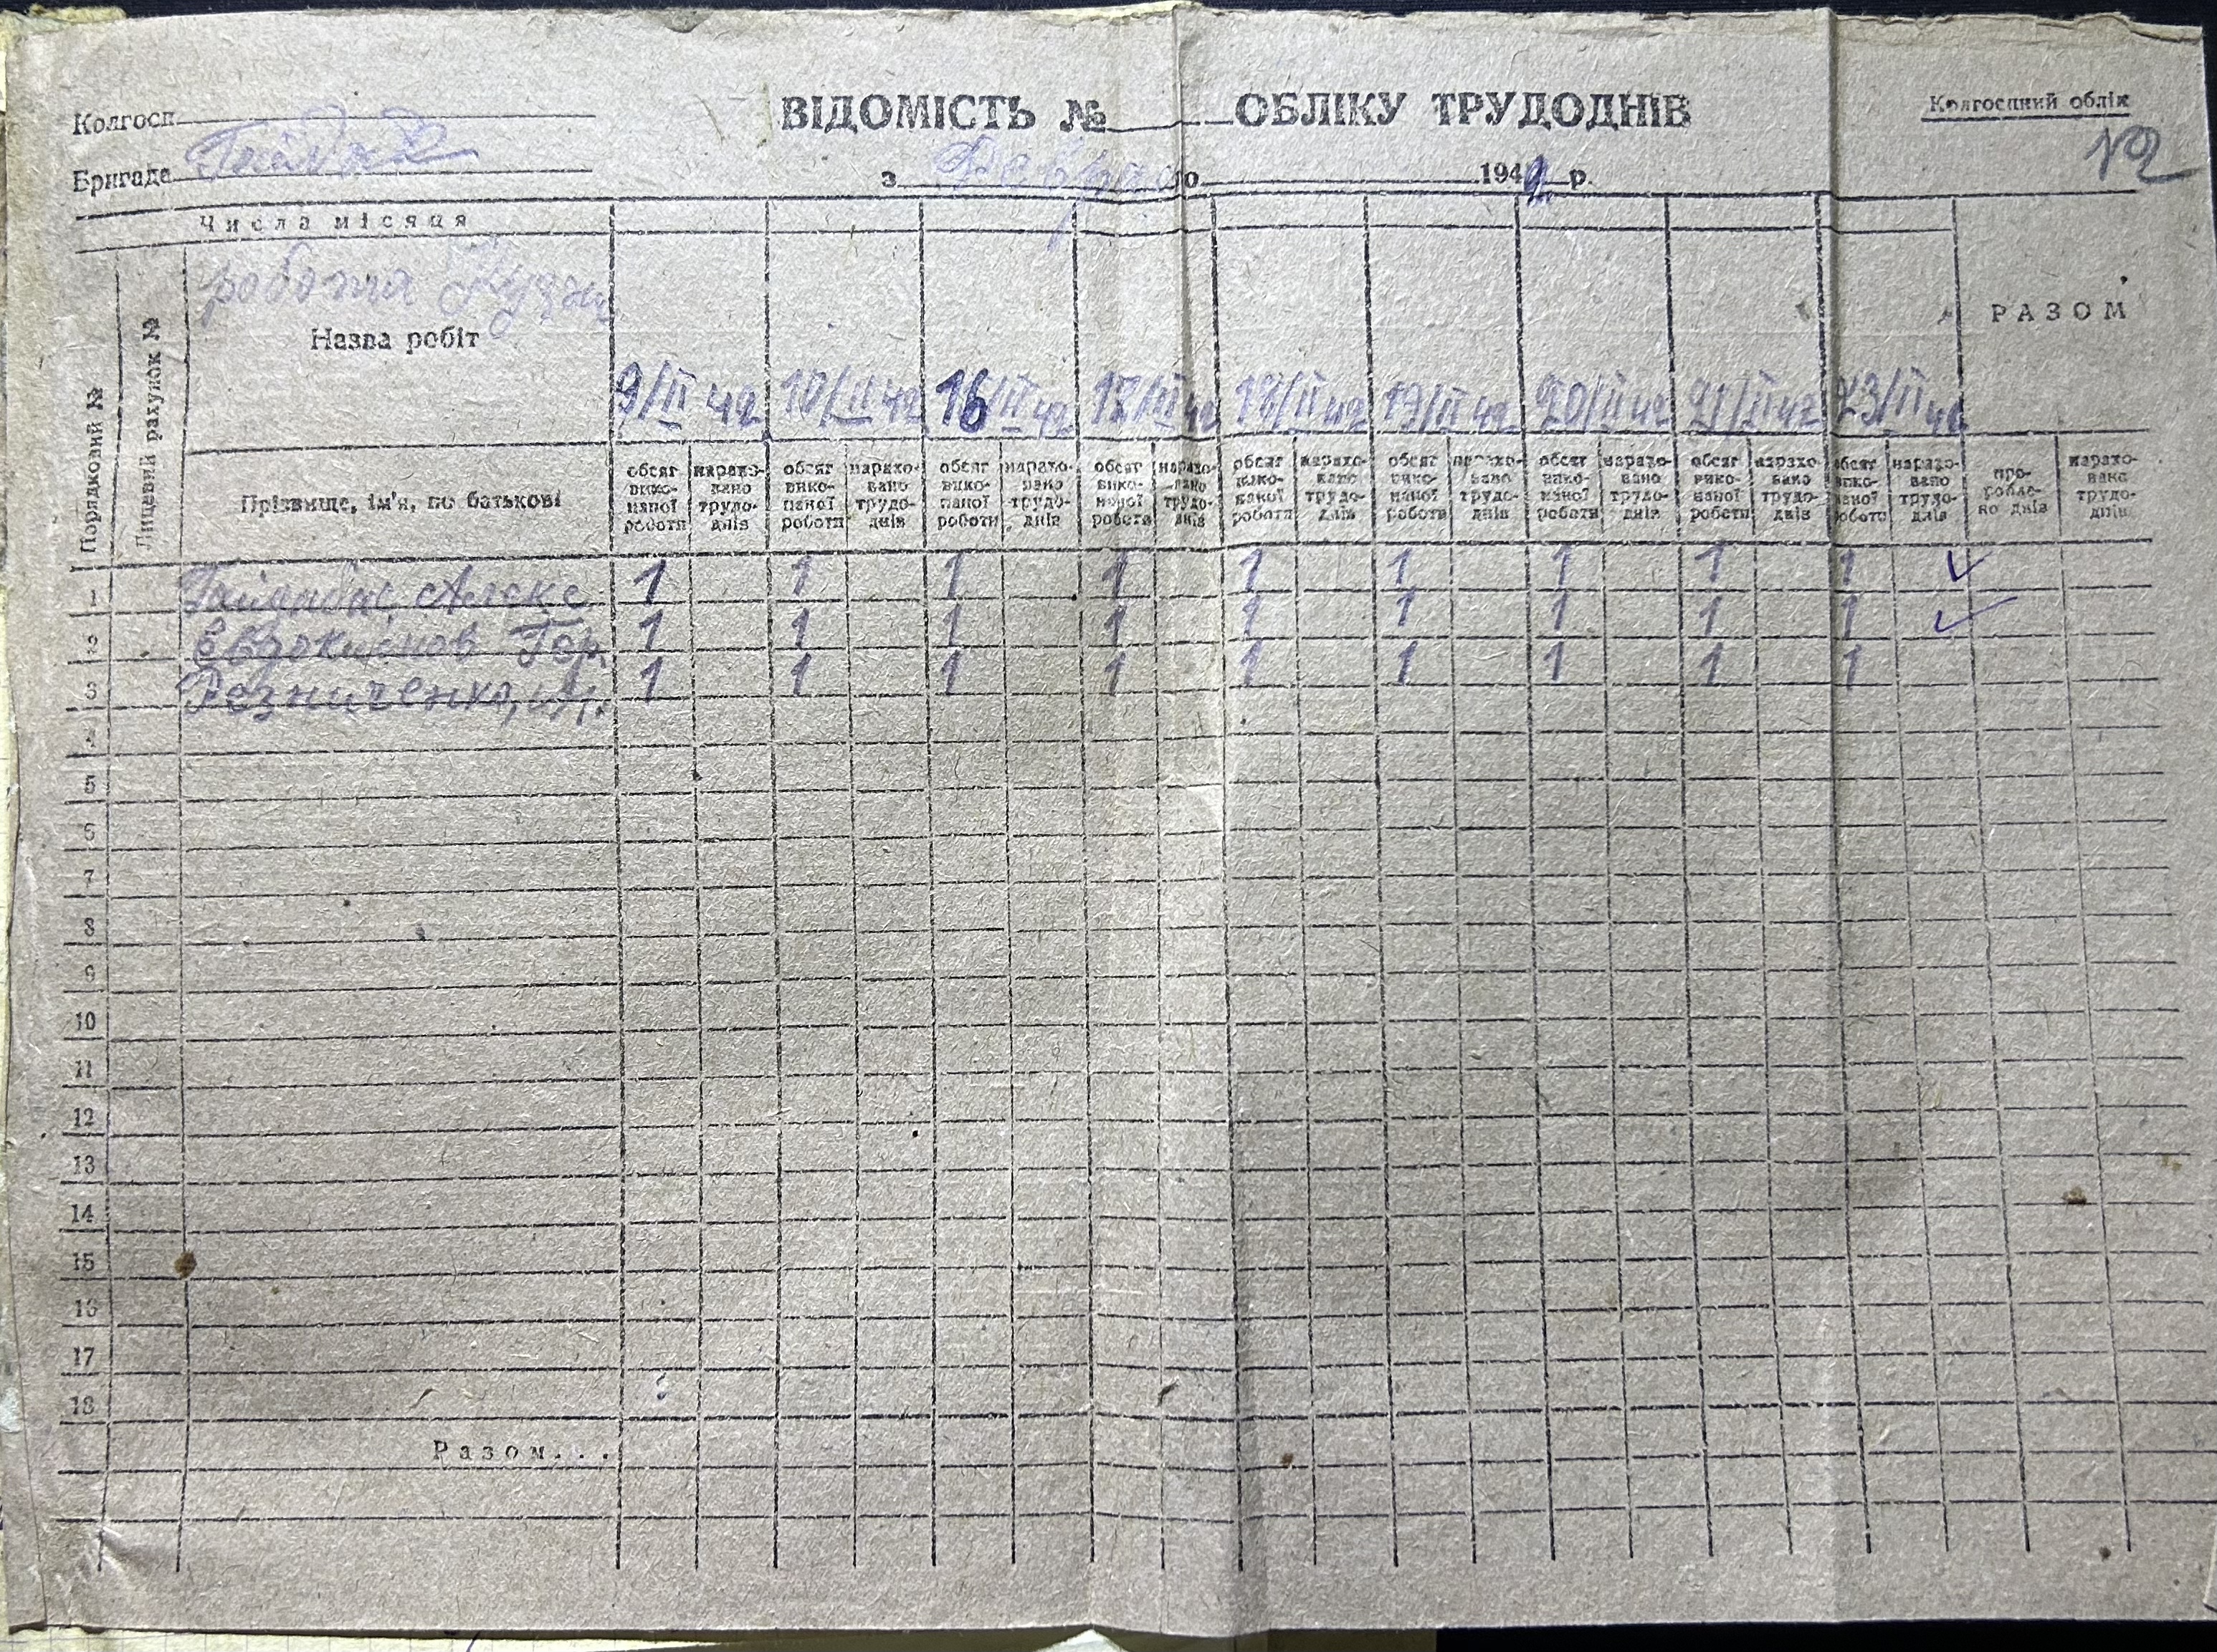 Колгосп
ВІДОМІСТЬ № ОБЛІКУ ТРУДОДНІВ
Колгоспний облік
Бригада
з до 1942 р.
№2
Числа місяця
робота
Назва робіт
Порядковий №
Лицевий рахунок №
9/II 42 10/II 42 16/II 42 17/II 42 18/II 42 19/II 42 20/II 42 21/II 42 23/II 42
РАЗОМ
Прізвище, ім'я, по батькові
обсяг виконаної роботи нараховано трудоднів обсяг виконаної роботи нараховано трудоднів обсяг виконаної роботи нараховано трудоднів обсяг виконаної роботи нараховано трудоднів обсяг виконаної роботи нараховано трудоднів обсяг виконаної роботи нараховано трудоднів обсяг виконаної роботи нараховано трудоднів обсяг виконаної роботи нараховано трудоднів обсяг виконаної роботи нараховано трудоднів пророблено днів нараховано трудоднів
1 Гайдабас Алекс. 1 1 1 1 1 1 1 1 1 ✓
2 Евдокимов 1 1 1 1 1 1 1 1 1 ✓
3 Резниченко, 1 1 1 1 1 1 1 1 1
4
5
6
7
8
9
10
11
12
13
14
15
16
17
18
Разом...